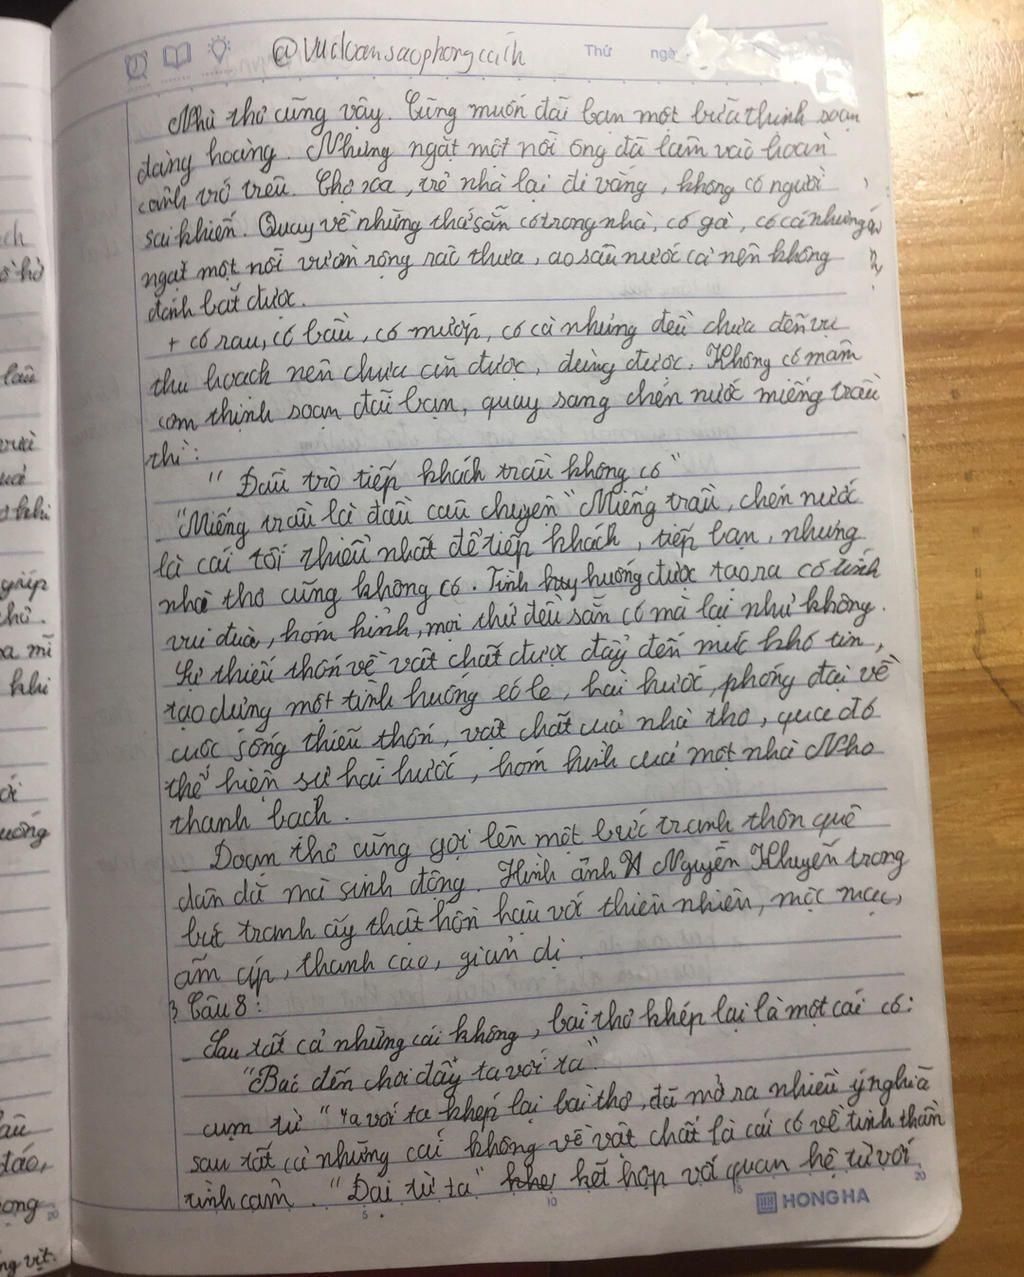 @vudoansaophongcach
Thứ ngày
Nhà thơ cũng vậy. Cũng muốn đãi bạn một bữa thịnh soạn
đàng hoàng. Nhưng ngặt một nỗi ông đã lâm vào hoàn
cảnh trớ trêu. Chợ xa, trẻ nhà lại đi vắng, không có người
sai khiến. Quay về những thứ sẵn có trong nhà, có gà, có cá nhưng
ngặt một nỗi vườn rộng rào thưa, ao sâu nước cả nên không
đánh bắt được.
+ có rau, có bầu, có mướp, có cà nhưng đều chưa đến vụ
thu hoạch nên chưa ăn được, dùng được. Không có mâm
cơm thịnh soạn đãi bạn, quay sang chén nước miếng trầu
thì:
"Đầu trò tiếp khách trầu không có"
"Miếng trầu là đầu câu chuyện" Miếng trầu, chén nước
là cái tối thiểu nhất để tiếp khách, tiếp bạn, nhưng
nhà thơ cũng không có. Tình huống được tạo ra có tính
vui đùa, hóm hỉnh, mọi thứ đều sẵn có mà lại như không.
Sự thiếu thốn về vật chất được đẩy đến mức khó tin,
tạo dựng một tình huống éo le, hài hước, phóng đại về
cuộc sống thiếu thốn, vật chất của nhà thơ, qua đó
thể hiện sự hài hước, hóm hỉnh của một nhà Nho
thanh bạch.
Đoạn thơ cũng gợi lên một bức tranh thôn quê
dân dã mà sinh động. Hình ảnh Nguyễn Khuyến trong
bức tranh ấy thật hồn hậu với thiên nhiên, mộc mạc,
ấm áp, thanh cao, giản dị.
3 Câu 8:
Sau tất cả những cái không, bài thơ khép lại là một cái có:
"Bác đến chơi đây ta với ta"
cụm từ "ta với ta khép lại bài thơ, đã mở ra nhiều ý nghĩa
sau tất cả những cái không về vật chất là cái có về tinh thần
tình cảm. "Đại từ ta" kết hợp với quan hệ từ với
5 10 15 20
HONG HA